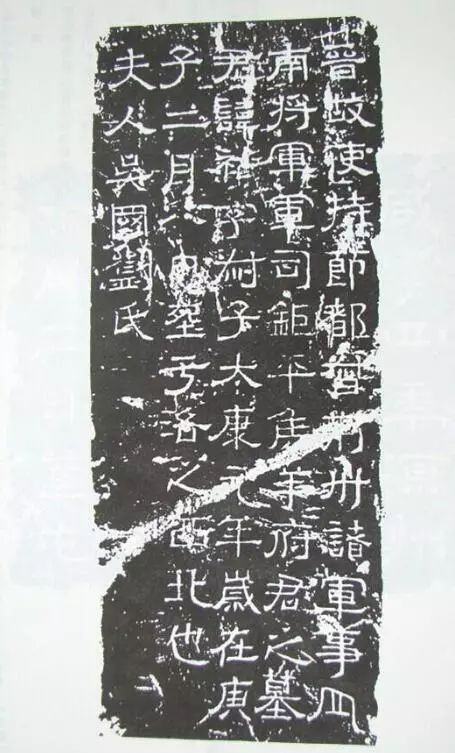 晉故使持節都督荊州諸軍事
南将軍軍司鉅平侯羊府君之墓
君諱祜字叔子太康元年歲在庚
子二月于洛之西北也
夫人吳國氏